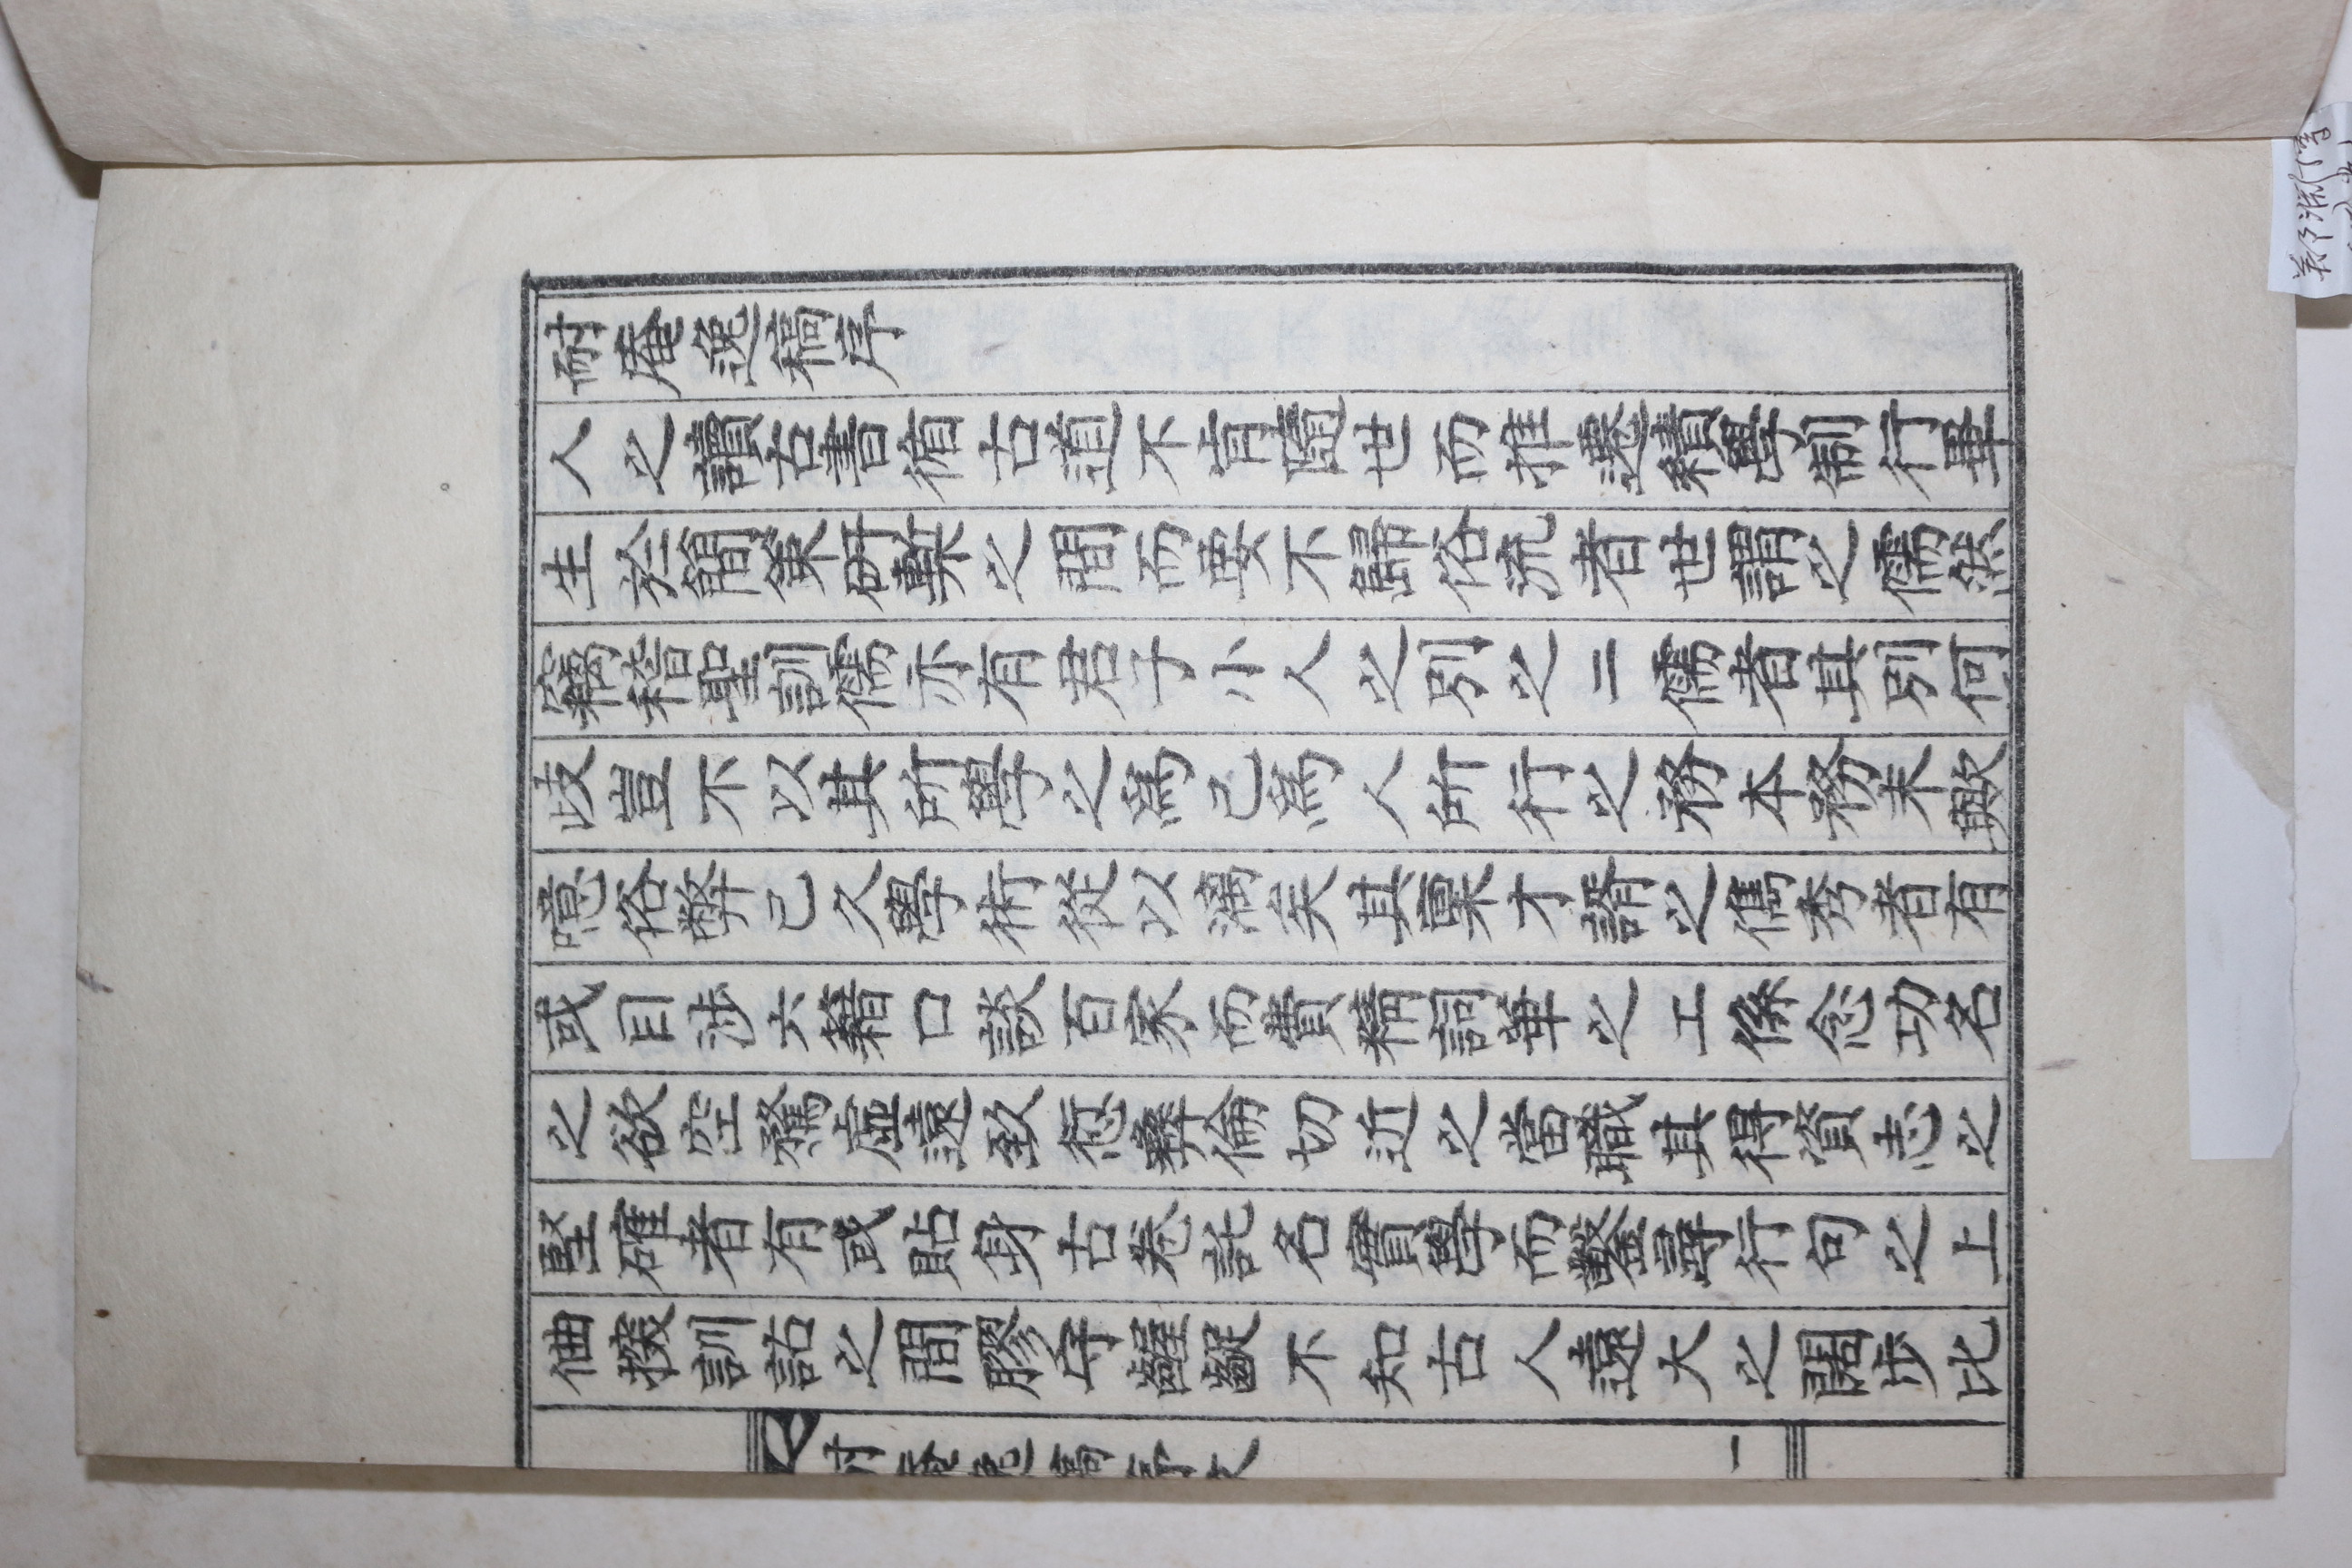 耐庵逸稿序
人之讀古書循古道不肯隨世而推遷績學制行畢
生於簡策硏槧之間而要不歸俗流者世謂之儒然
竊稽聖訓儒亦有君子小人之別之二儒者其別何
歧豈不以其所學之爲己爲人所行之務本務末歟
噫俗弊已久學術從以漓矣其稟才諝之儁秀者有
或目涉六籍口談百家而費精詞華之工係念功名
之欲空騖虛遠致愆彝倫切近之當職其得資志之
堅確者有或貼身古卷託名實學而鑿尋行句之上
佃揬訓詁之間膠守齷齪不知古人遠大之闊步比
耐庵逸稿序文
一